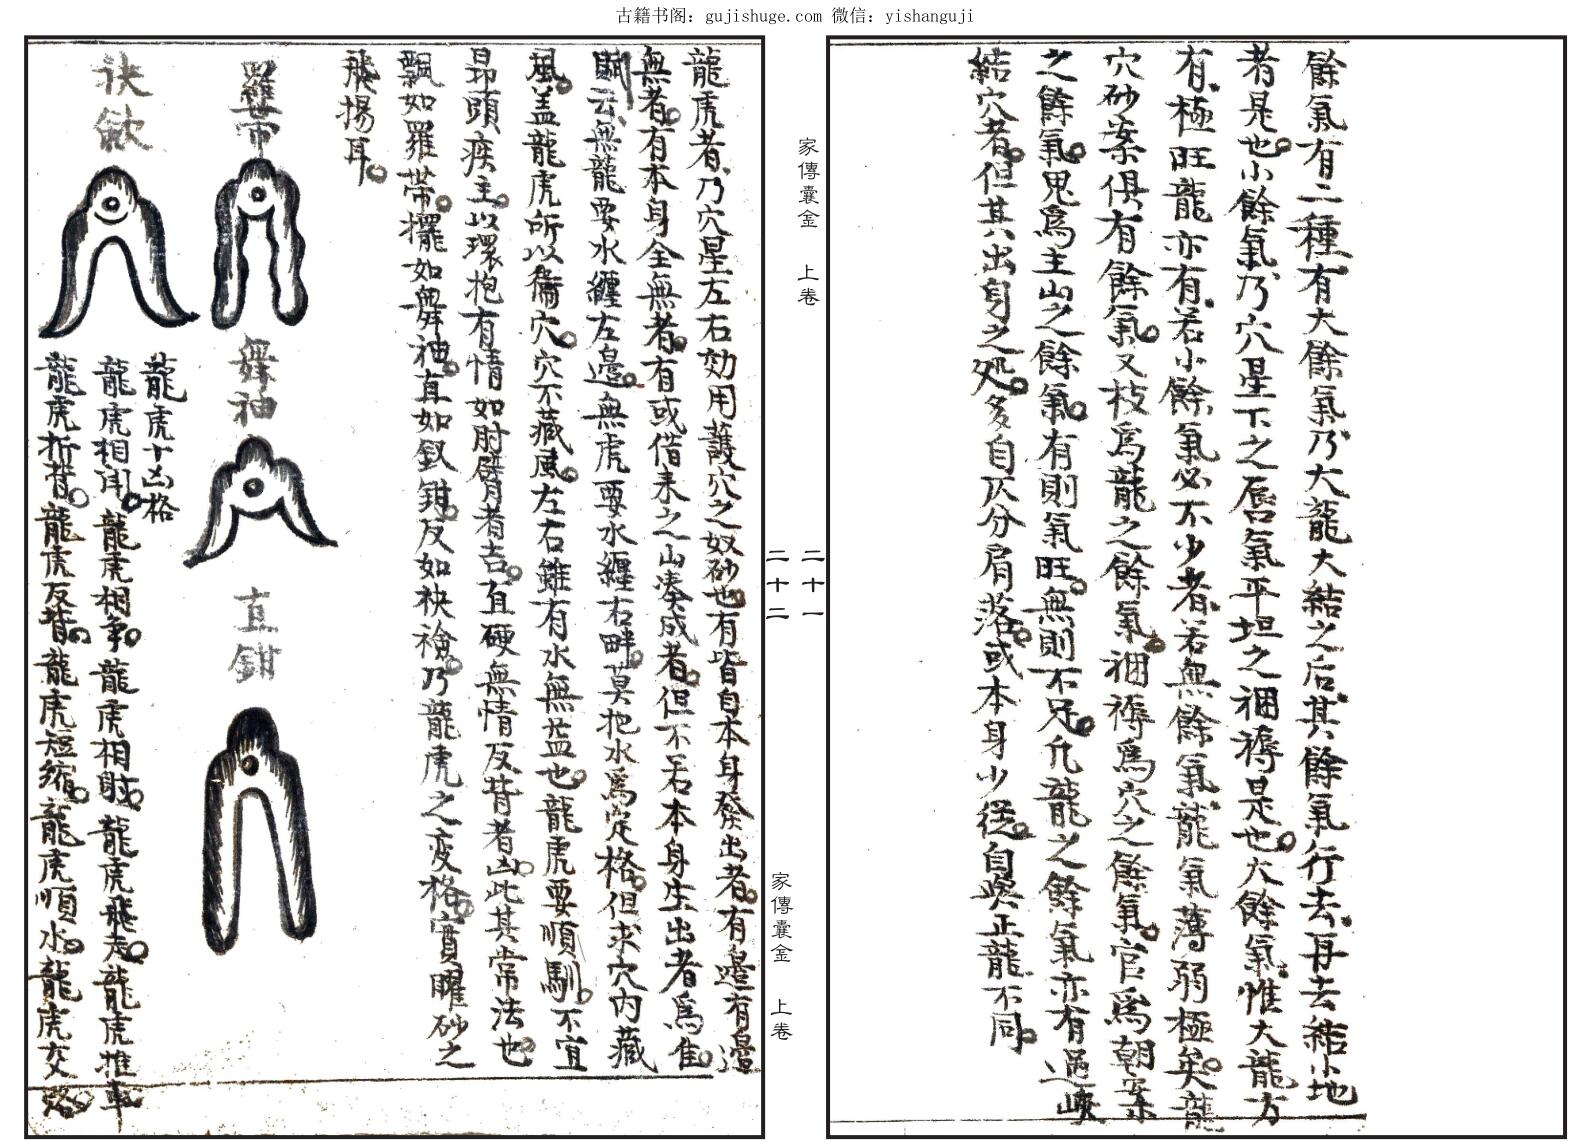 古籍书阁：gujishuge.com 微信：yishanguji
餘氣有二種有大餘氣乃大龍大結之后其餘氣行去再去結小地
者是也小餘氣乃穴星下之唇氣平坦之裀褥是也大餘氣惟大龍方
有極旺龍亦有若小餘氣必不少者若無餘氣龍氣薄弱極矣龍
穴砂案俱有餘氣又枝爲龍之餘氣裀褥爲穴之餘氣官爲朝案
之餘氣鬼爲主山之餘氣有則氣旺無則不足凢龍之餘氣亦有過峽
結穴者但其出身之処多自仄分肩落或本身少從自與正龍不同
家傳囊金 上卷
二十一
二十二
家傳囊金 上卷
龍虎者乃穴星左右効用護穴之奴砂也有皆自本身發出者有邊有邊
無者有本身全無者有或借末之山湊成者但不若本身生出者爲佳
賦云無龍要水纏左邊無虎要水纏右畔莫把水爲定格但求穴內藏
風盖龍虎所以衛穴穴不藏風左右雖有水無益也龍虎要順馴不宜
昂頭疾主以環抱有情如肘臂者吉直硬無情反背者凶此其常法也
飄如羅帶擺如舞袖直如釵鉗反如袂襘乃龍虎之变格實曜砂之
飛揚耳
羅帶
舞袖
直鉗
袂歛
龍虎十凶格
龍虎相鬬龍虎相爭龍虎相射龍虎飛走龍虎推車
龍虎折背龍虎反背龍虎短縮龍虎順水龍虎交路